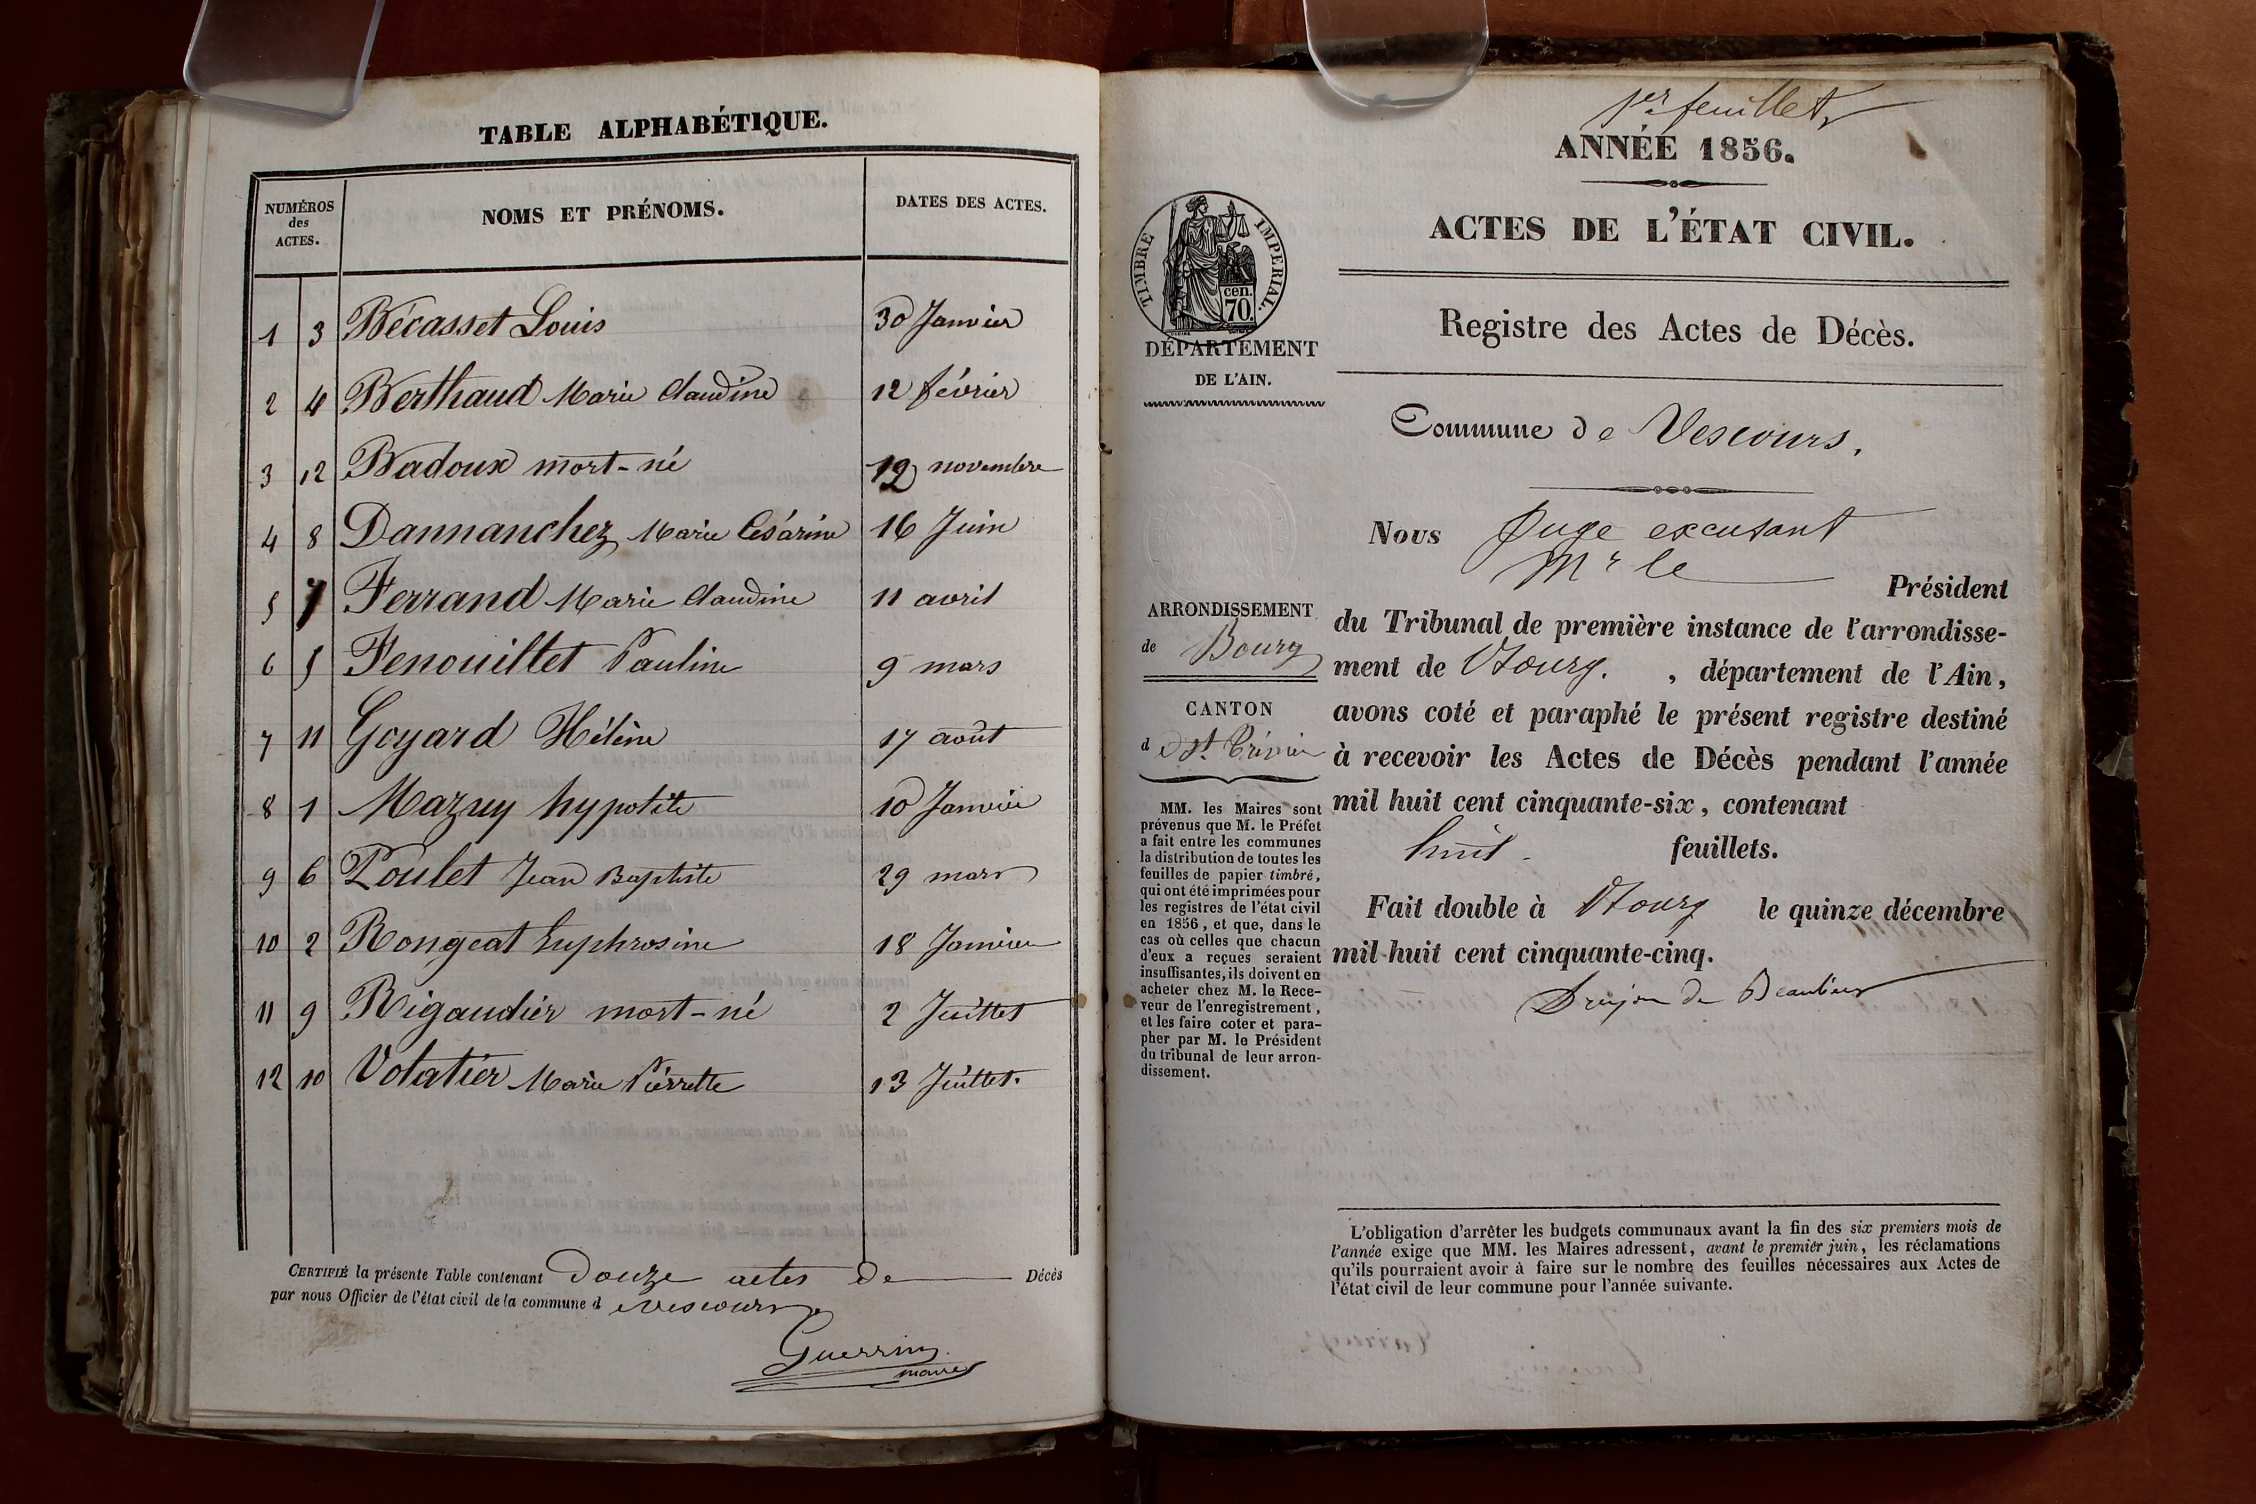 TABLE ALPHABÉTIQUE.
NUMÉROS des ACTES. NOMS ET PRÉNOMS. DATES DES ACTES.
1 3 Bécasset Louis 30 Janvier
2 4 Berthaud Marie Claudine 12 février
3 12 Badoux mort-né 12 novembre
4 8 Dannanchez Marie Césarine 16 Juin
5 7 Ferrand Marie Claudine 11 avril
6 5 Fenouillet Pauline 9 mars
7 11 Goyard Hélène 17 août
8 1 Mazuy hypolite 10 Janvier
9 6 Poulet Jean Baptiste 29 mars
10 2 Rongeat Euphrosine 18 Janvier
11 9 Rigaudier mort-né 2 Juillet
12 10 Volatier Marie Pierrette 13 Juillet.
CERTIFIÉ la présente Table contenant Douze actes de Décès
par nous Officier de l'état civil de la commune d e Vescours
Guerrin
maire
1er feuillet
ANNÉE 1856.
ACTES DE L'ÉTAT CIVIL.
TIMBRE IMPERIAL.
70 cen.
DÉPARTEMENT
DE L'AIN.
Registre des Actes de Décès.
Commune de Vescours.
ARRONDISSEMENT
de Bourg
CANTON
d e St. Trivier
MM. les Maires sont
prévenus que M. le Préfet
a fait entre les communes
la distribution de toutes les
feuilles de papier timbré,
qui ont été imprimées pour
les registres de l'état civil
en 1856, et que, dans le
cas où celles que chacun
d'eux a reçues seraient
insuffisantes, ils doivent en
acheter chez M. le Rece-
veur de l'enregistrement,
et les faire coter et para-
pher par M. le Président
du tribunal de leur arron-
dissement.
Nous Juge excusant
Mr le Président
du Tribunal de première instance de l'arrondisse-
ment de Bourg. , département de l'Ain,
avons coté et paraphé le présent registre destiné
à recevoir les Actes de Décès pendant l'année
mil huit cent cinquante-six, contenant
huit feuillets.
Fait double à Bourg le quinze décembre
mil huit cent cinquante-cinq.
Drujon de Beaulieu
L'obligation d'arrêter les budgets communaux avant la fin des six premiers mois de
l'année exige que MM. les Maires adressent, avant le premier juin, les réclamations
qu'ils pourraient avoir à faire sur le nombre des feuilles nécessaires aux Actes de
l'état civil de leur commune pour l'année suivante.